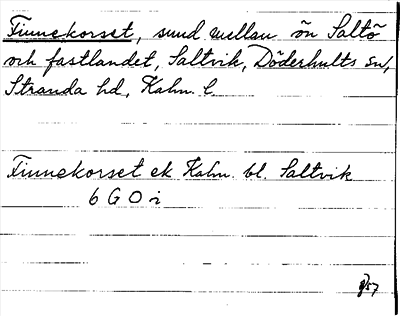 Finnekorset, sund mellan ön Saltö
och fastlandet, Saltvik, Döderhults sn,
Stranda hd, Kalm. l.
Finnekorset ek Kalm. bl. Saltvik
6 G 0 i
57